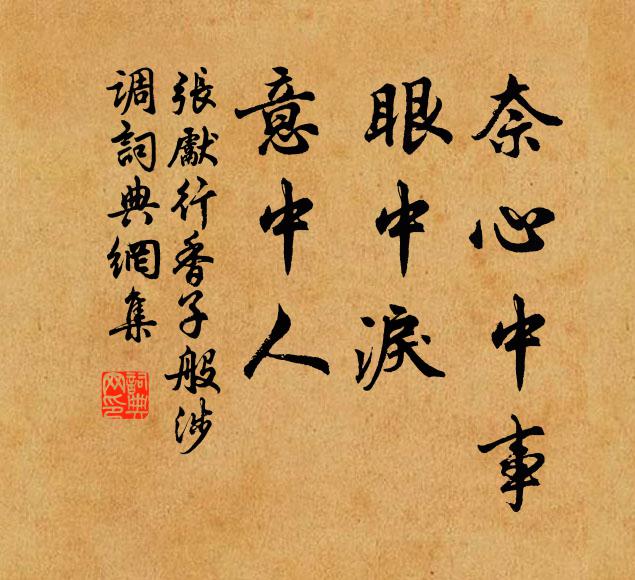 奈心中事
眼中淚
意中人
張獻行香子般涉
调詞典網集
詞典
网印